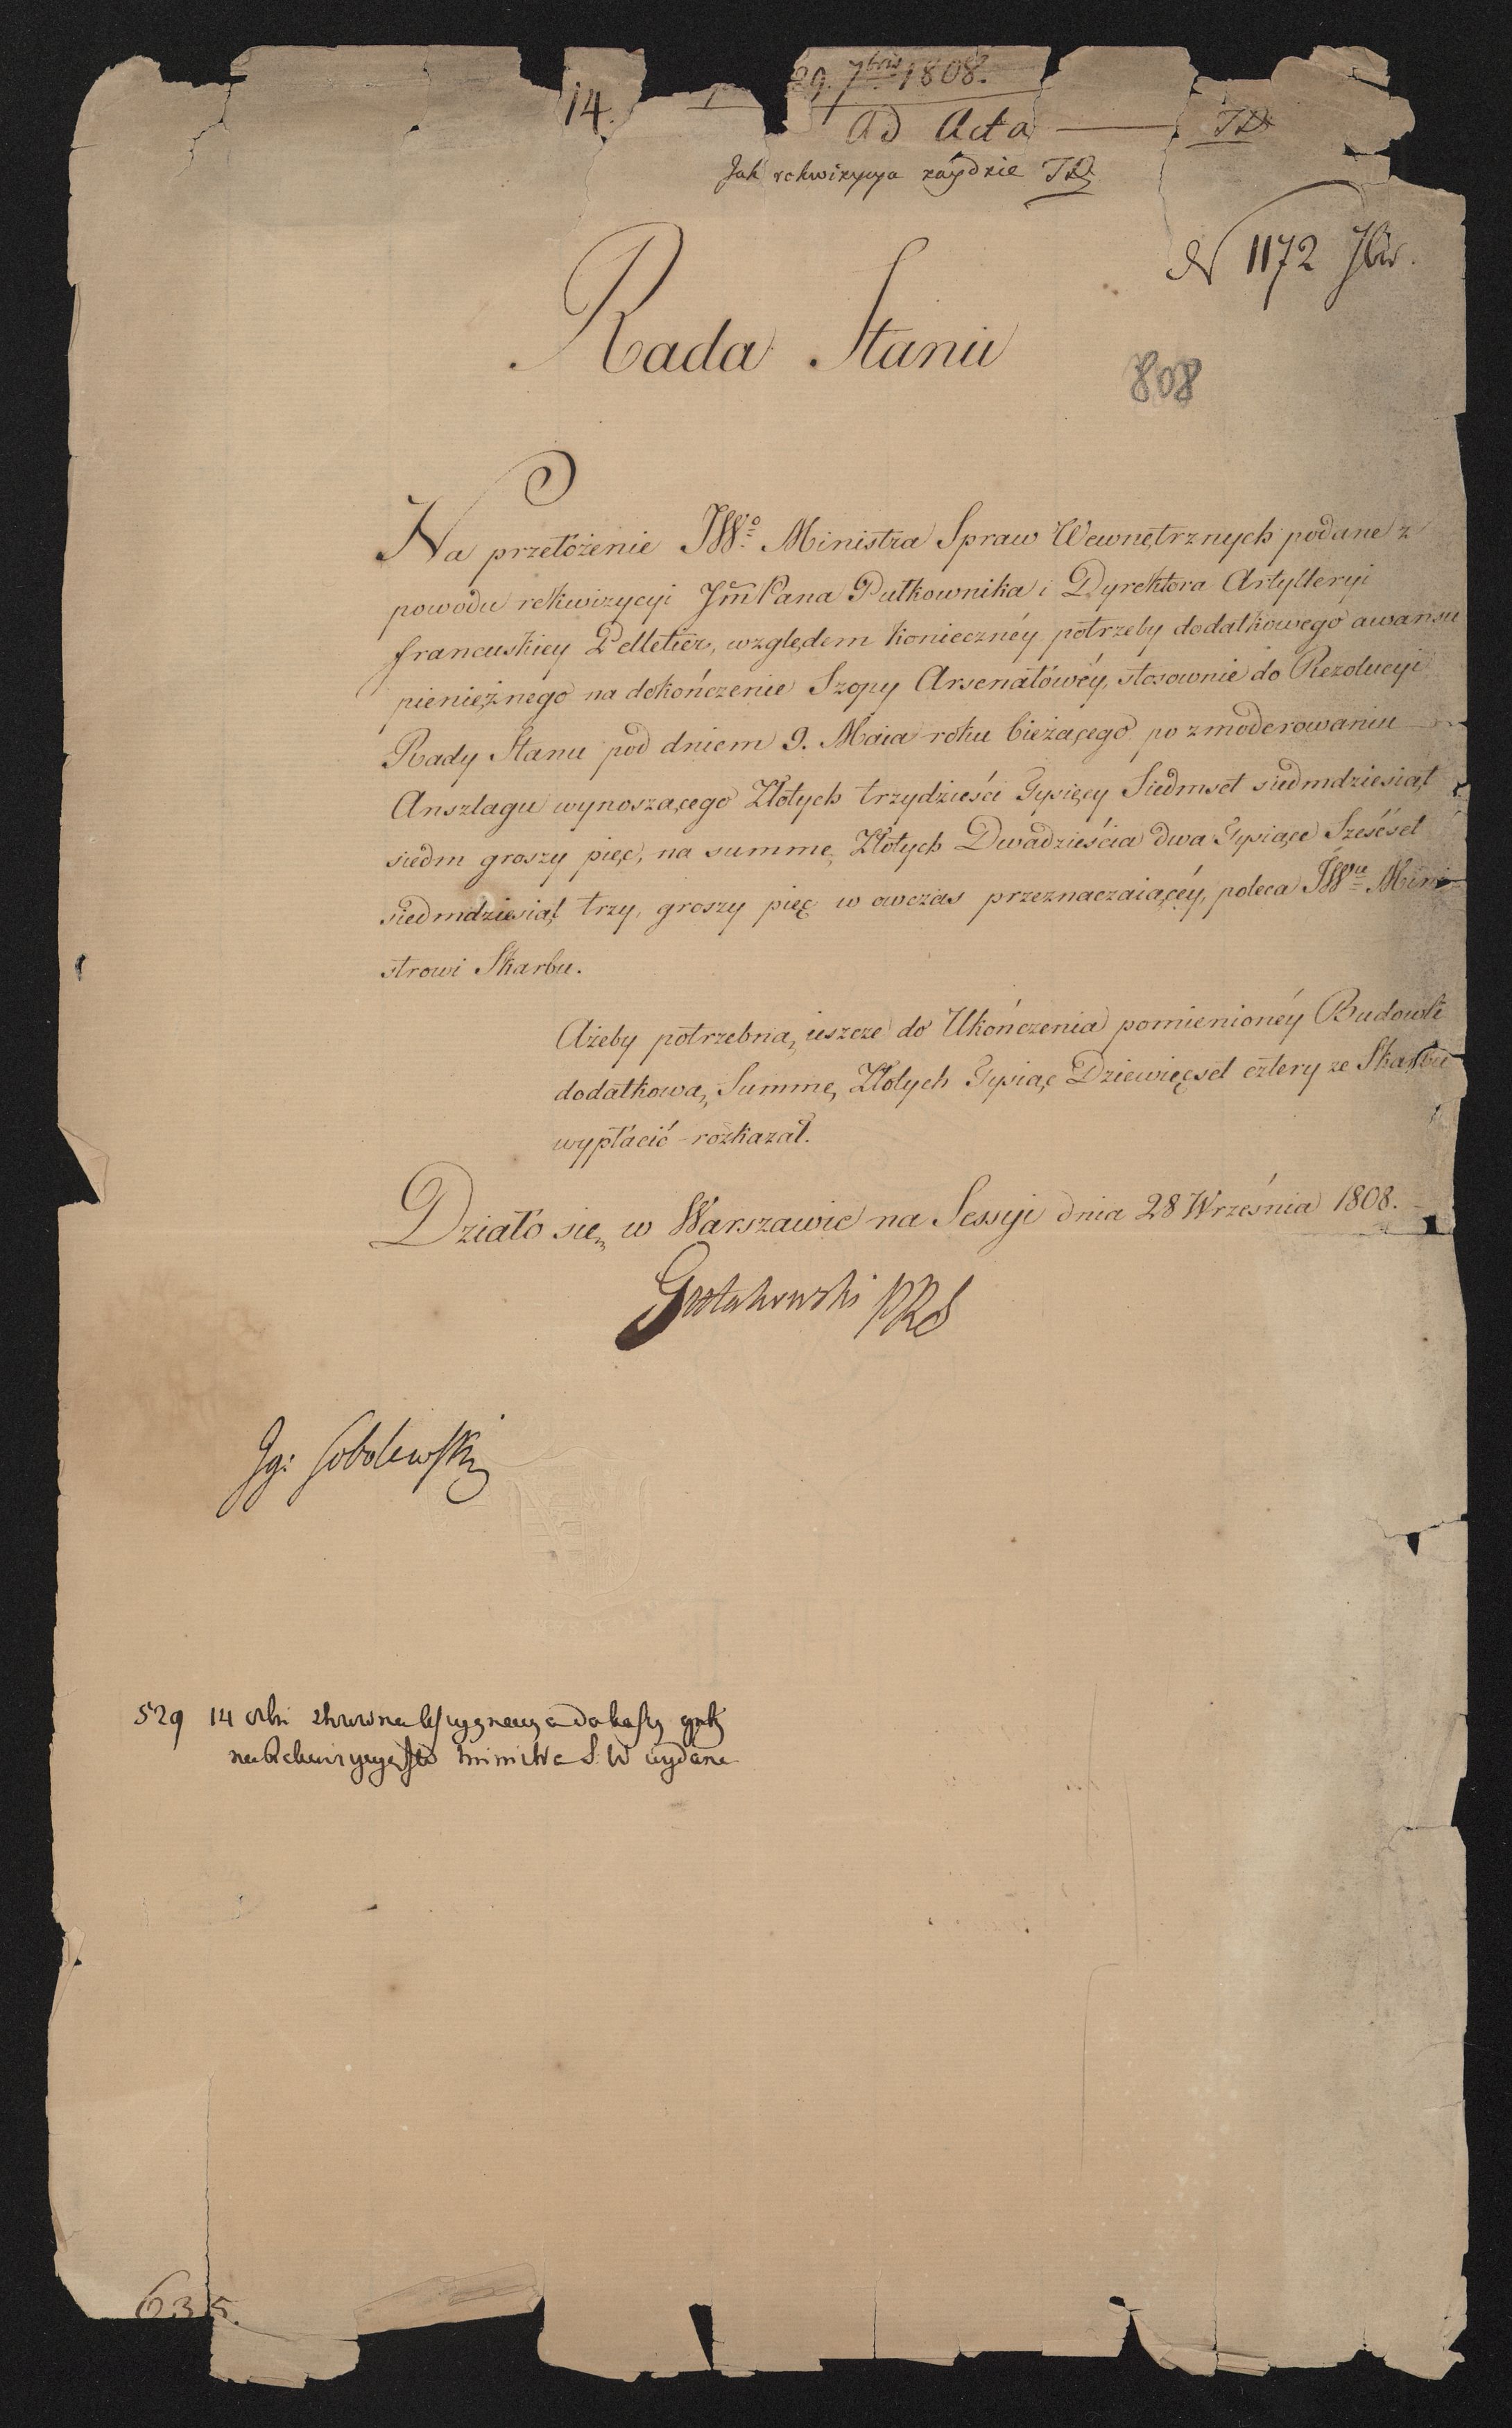 29. 7bris 1808.
14.
Ad Acta — TD
Jak rekwizycya zaydzie TD
N 1172 7br.
Rada Stanu
808
Na przełożenie JWo. Ministra Spraw Wewnętrznych podane z
powodu rekwizycyi Jm̃Pana Pułkownika i Dyrektora Artylleryi
francuskiey Pelletier, względem konieczney potrzeby dodatkowego awansu
pieniężnego na dokończenie Szopy Arsenałowéy, stosownie do Rezolucyi
Rady Stanu pod dniem 9. Maia roku bieżącego po zmoderowaniu
Anszlagu wynoszącego Złotych trzydzieści Tysięcy Siedmset siedmdziesiąt
siedm groszy pięć, na summę Złotych Dwadzieścia dwa Tysiące Sześćset
siedmdziesiąt trzy, groszy pięć w owczas przeznaczaiącéy, poleca JWu Mini-
strowi Skarbu.
Ażeby potrzebną ieszcze do Ukończenia pomienionéy Budowli
dodatkową Summę Złotych Tysiąc Dziewięćset cztery ze Skarbu
wypłacić rozkazał.
Działo się w Warszawie na Sessyi dnia 28 Września 1808.
Gutakowski PRS
Ig: Sobolewski
529 14
S. W wydana
635.